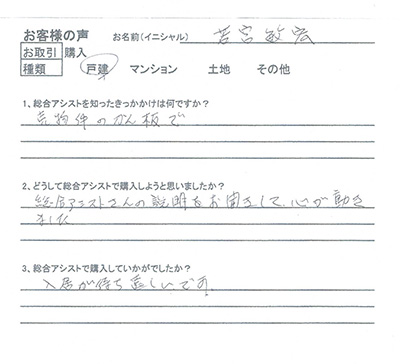 お客様の声 お名前(イニシャル) 若宮敏宏
お取引 購入
種類 戸建 マンション 土地 その他
1、総合アシストを知ったきっかけは何ですか?
売物件のかん板で
2、どうして総合アシストで購入しようと思いましたか?
総合アシストさんの説明をお聞きして、心が動き
ました
3、総合アシストで購入していかがでしたか?
入居が待ち遠しいです。